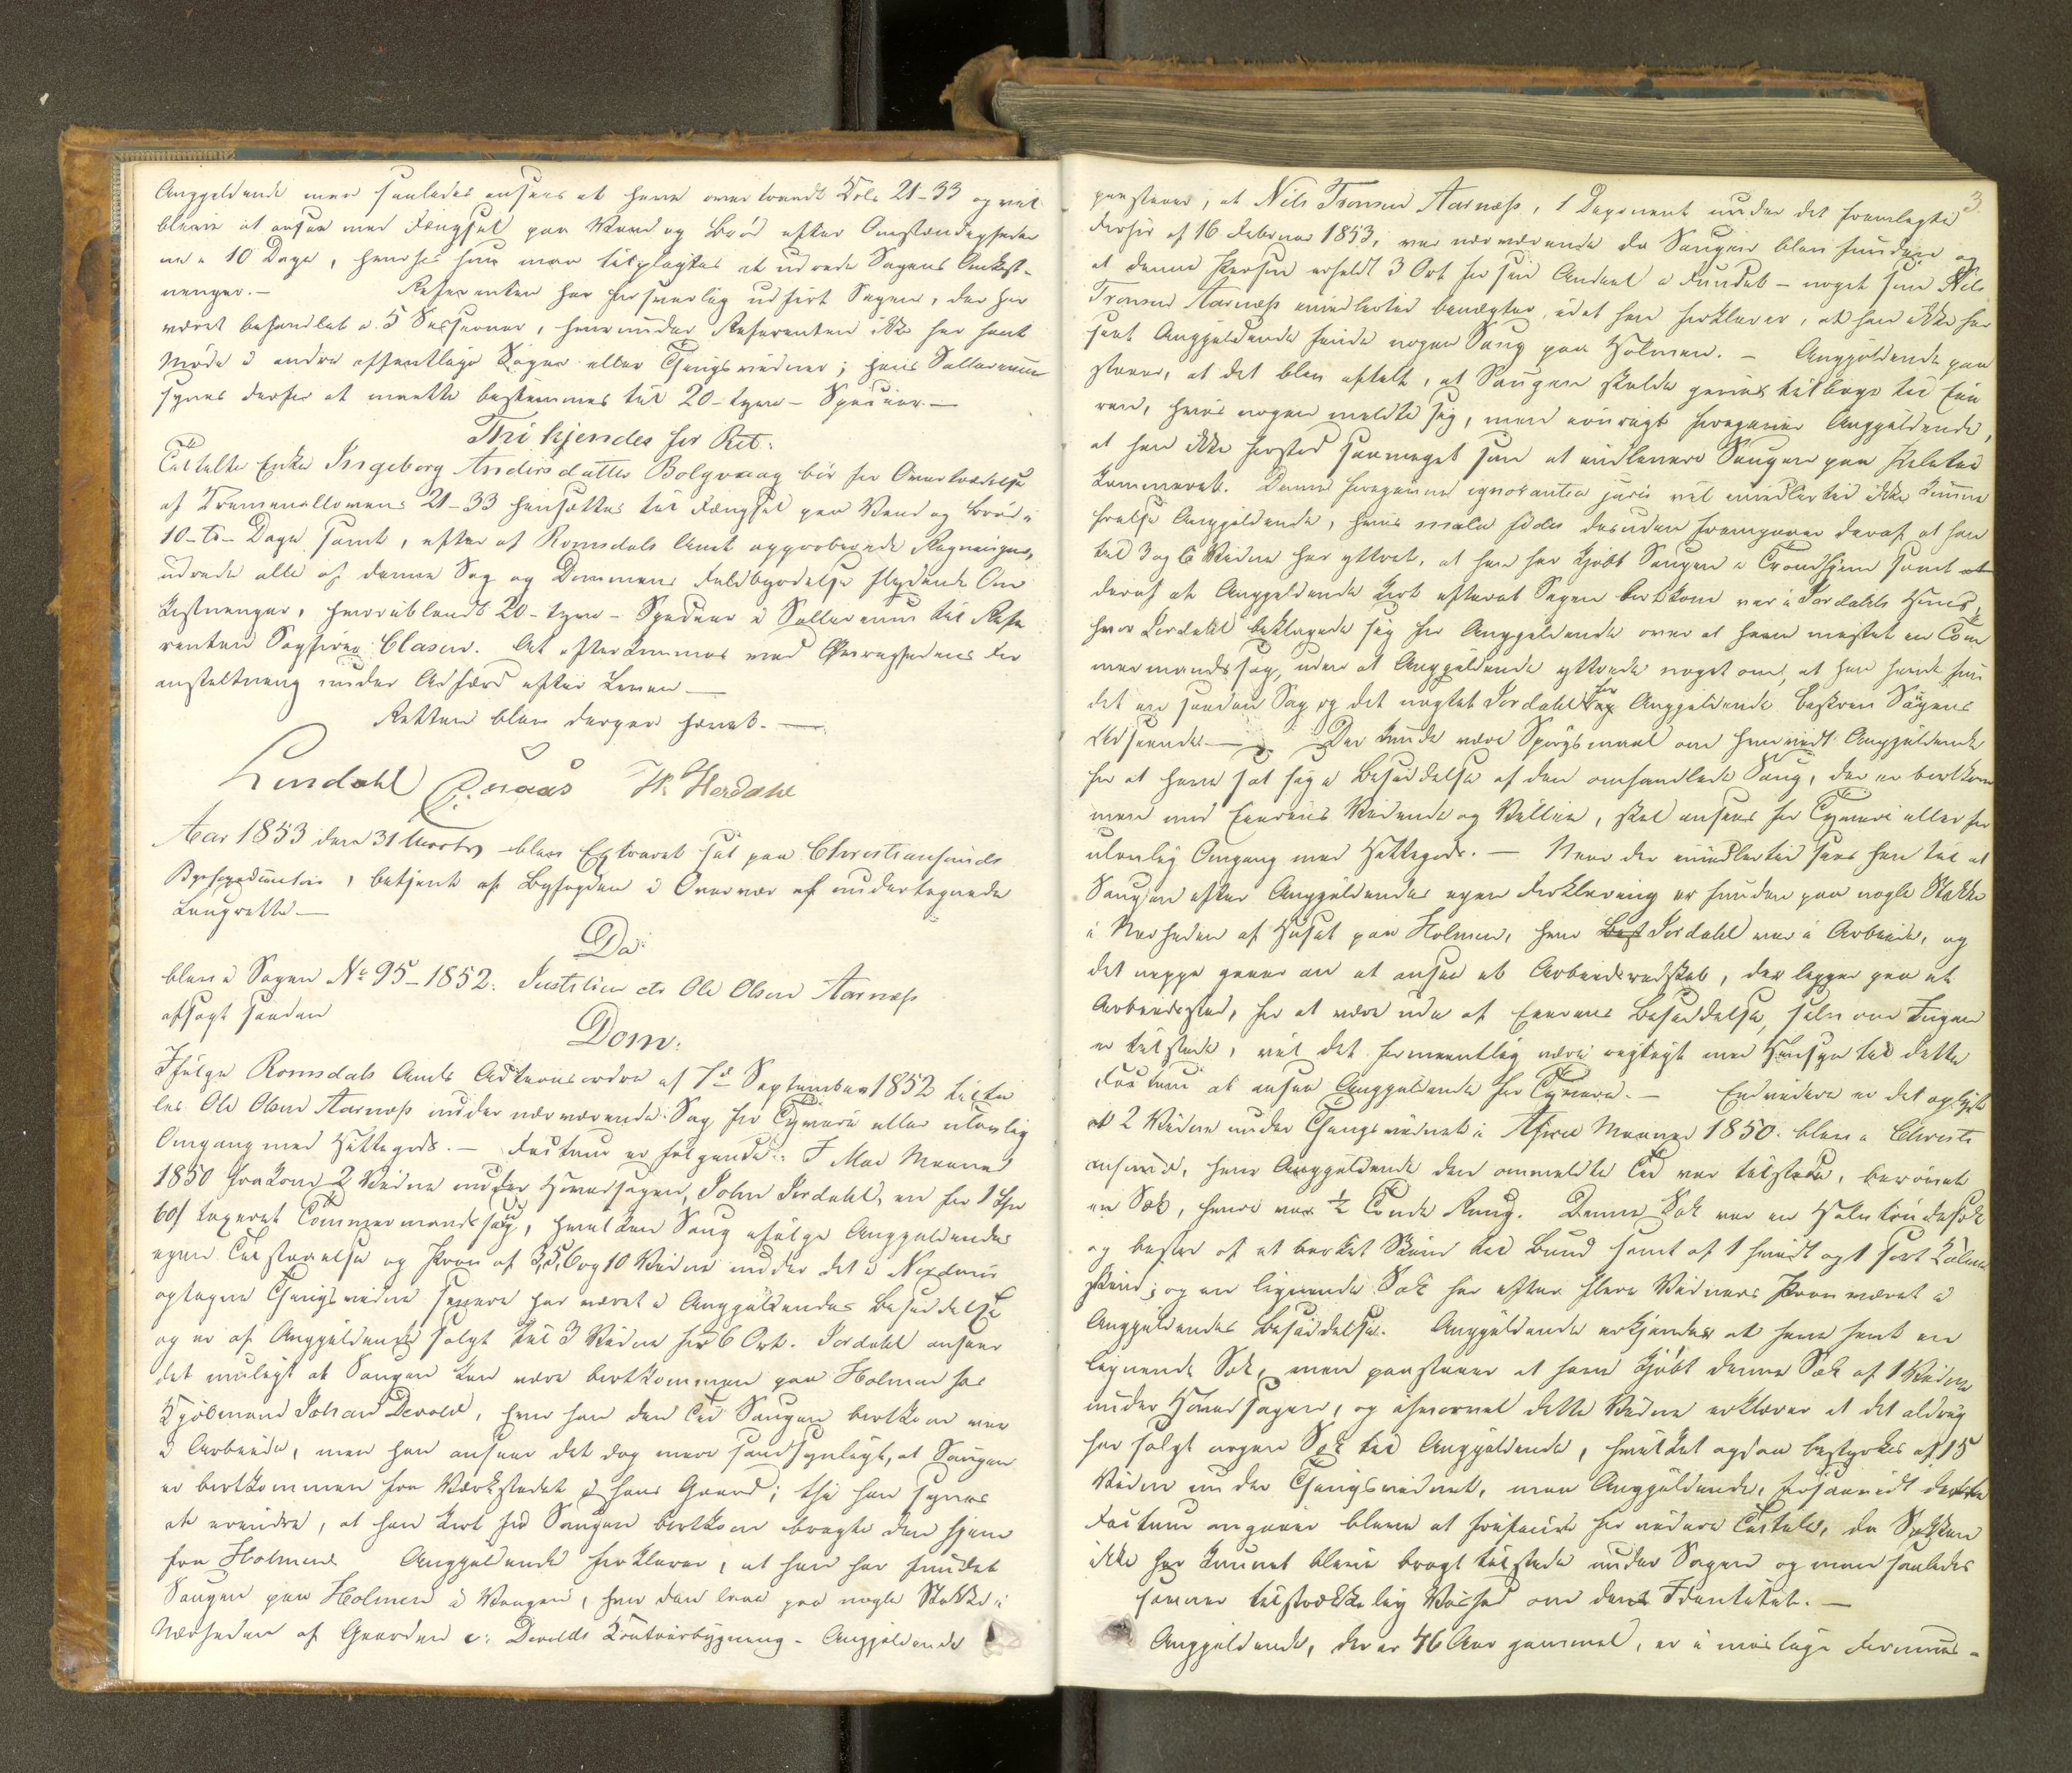 Angjeldende maa saaledes ansees at have overtraadt Krls 21-33 og vil
blive at ansee med Fængsel paa Vand og Brød efter Omstændighederne
i 10 Dage, hvorhos hun maa tilpligtes at udrede Sagens Omkost-
ninger. — Referenten har forsvarlig udført Sagen, der har
været behandlet i 5 Sessioner, hvorunder Referenten ikke har havt
Møde i andre offentlige Sager eller Thingsvidner; hans Sallarium
synes derfor at maatte bestemmes til 20 - tyve - Specier. —
Thi kjendes for Ret:
Tiltalte Enke Ingeborg Andersdatter Bolgvaag bør for Overtrædelse
af Criminallovens 21-33 hensættes til Fængsel paa Vand og Brød i
10 - ti - Dage samt, efter af Romsdals Amt approberede Regninger,
udrede alle af denne Sag og Dommens Fuldbyrdelse flydende Om
kostninger, hvoriblandt 20 - tyve - Specier i Sallarium til Refe
renten Sagfører Clasen. At efterkommes ved Øvrighedens For
anstaltning under Adfærd efter Loven. —
Retten blev derpaa hævet. —
Lindahl H. Herdahl
Aar 1853 den 31 Marts blev Extraret sat paa Christiansunds
Byfogedcontoir, betjent af Byfogden i Overvær af undertegnede
Laugrette. —
Da
blev i Sagen No 95-1852. Justitien ctr Ole Olsen Aarnæs
afsagt saadan
Dom:
Ifølge Romsdals Amts Actionsordre af 7de September 1852 tilta
les Ole Olsen Aarnæs under nærværende Sag for Tyveri eller ulovlig
Omgang med Hittegods. — Factum er følgende: I Mai Maaned
1850 frakom 2 Vidne under Hovedsagen, John Jordahl, en for 1 Ort
60/ taxeret Tømmermandssaug, hvilken Saug ifølge Angjeldendes
egen Tilstaaelse og Prov af 3, 5, 6 og 10 Vidne under det i Nordmør
optagne Thingsvidne senere har været i Angjeldendes Besiddelse
og er af Angjeldende solgt til 3 Vidne for 6 Ort. Jordahl anseer
det muligt at Saugen kan være bortkommen paa Holmen hos
Kjøbmand Johan Dervold, hvor han den Tid Saugen bortkom var
i Arbeide, men han anseer det dog mere sandsynligt, at Saugen
er bortkommen fra Værkstedet i hans Gaard; thi han synes
at erindre, at han kort før Saugen bortkom bragte den hjem
fra Holmen. Angjeldende forklarer, at han har fundet
Saugen paa Holmen i Vaagen, hvor den laae paa nogle Stokke i
Nærheden af Gaarden o: Devolds Contoirbygning. Angjeldende
3
paastaaer, at Nils Tronsen Aarnæs, 1 Deponent under det fremlagte
Forhør af 16 Februar 1853, var nærværende da Saugen blev funden og
at denne Person erholdt 3 Ort for sin Andeel i Fundet - noget som Nils
Tronsen Aarnæs imidlertid benægter, idet han forklarer, at han ikke har
seet Angjeldende finde nogen Saug paa Holmen. — Angjeldende paa
staaer, at det blev aftalt, at Saugen skulde gives tilbage til Eie
ren, hvis nogen meldte sig, men iøvrigt foregiver Angjeldende,
at han ikke forstod saameget som at indlevere Saugen paa Politie
kammeret. Denne foregivne ignorantia juris vil imidlertid ikke kunne
frelse Angjeldende, hvis mala fides desuden fremgaaer deraf at han
til 3 og 6 Vidne har yttret, at han har kjøbt Saugen i Trondhjem samt
deraf at Angjeldende kort efterat Sagen bortkom var i Jordahls Huus,
hvor Jordahl beklagede sig for Angjeldende over at have mistet en Tøm
mermandssag, uden at Angjeldende yttrede noget om, at han havde fun
det en saadan Sag og det uagtet Jordahl for Angjeldende beskrev Sagens
Udseende. — Der kunde være Spørgsmaal om hvorvidt Angjeldende
for at have sat sig i Besiddelse af den omhandlede Saug, der er bortkom
men mod Eierens Vidende og Villie, skal ansees for Tyveri eller for
ulovlig Omgang med Hittegods. — Naar der imidlertid sees hen til at
Saugen efter Angjeldendes egen Forklaring er funden paa nogle Stokke
i Nærheden af Huset paa Holmen, hvor Jordahl var i Arbeide, og
det neppe gaaer an at ansee et Arbeidsredskab, der ligger paa et
Arbeidssted, for at være ude af Eierens Besiddelse, selv om Ingen
er tilstede, vil det formeentlig være rigtigt med Hensyn til dette
Factum at ansee Angjeldende for Tyveri. — Endvidere er det oplyst
at 2 Vidne under Thingsvidnet i April Maaned 1850 blev i Christi
ansund, hvor Angjeldende den ommeldte Tid var tilstede, berøvet
en Sæk, hvori var ½ Tønde Rug. Denne Sæk var en Halvtøndesæk
og bestod af et barket Skind til Bund samt af 1 hvidt og 1 sort Kalve
skind; og en lignende Sæk har efter flere Vidners Prov været i
Angjeldendes Besiddelse. Angjeldende erkjender at have havt en
lignende Sæk, men paastaaer at have kjøbt denne Sæk af 1 Vidne
under Hovedsagen, og uhvorvel dette Vidne erklærer at det aldrig
har solgt nogen Sæk til Angjeldende, hvilket ogsaa bestyrkes af 15
Vidne under Thingsvidnet, maa Angjeldende, forsaavidt dette
Factum angaaer blive at frifinde for videre Tiltale, da Sækken
ikke har kunnet blive bragt tilstede under Sagen og man saaledes
savner tilstrækkelig Vished om dens Identitet. —
Angjeldende, der er 46 Aar gammel, er i maadelige Formues-